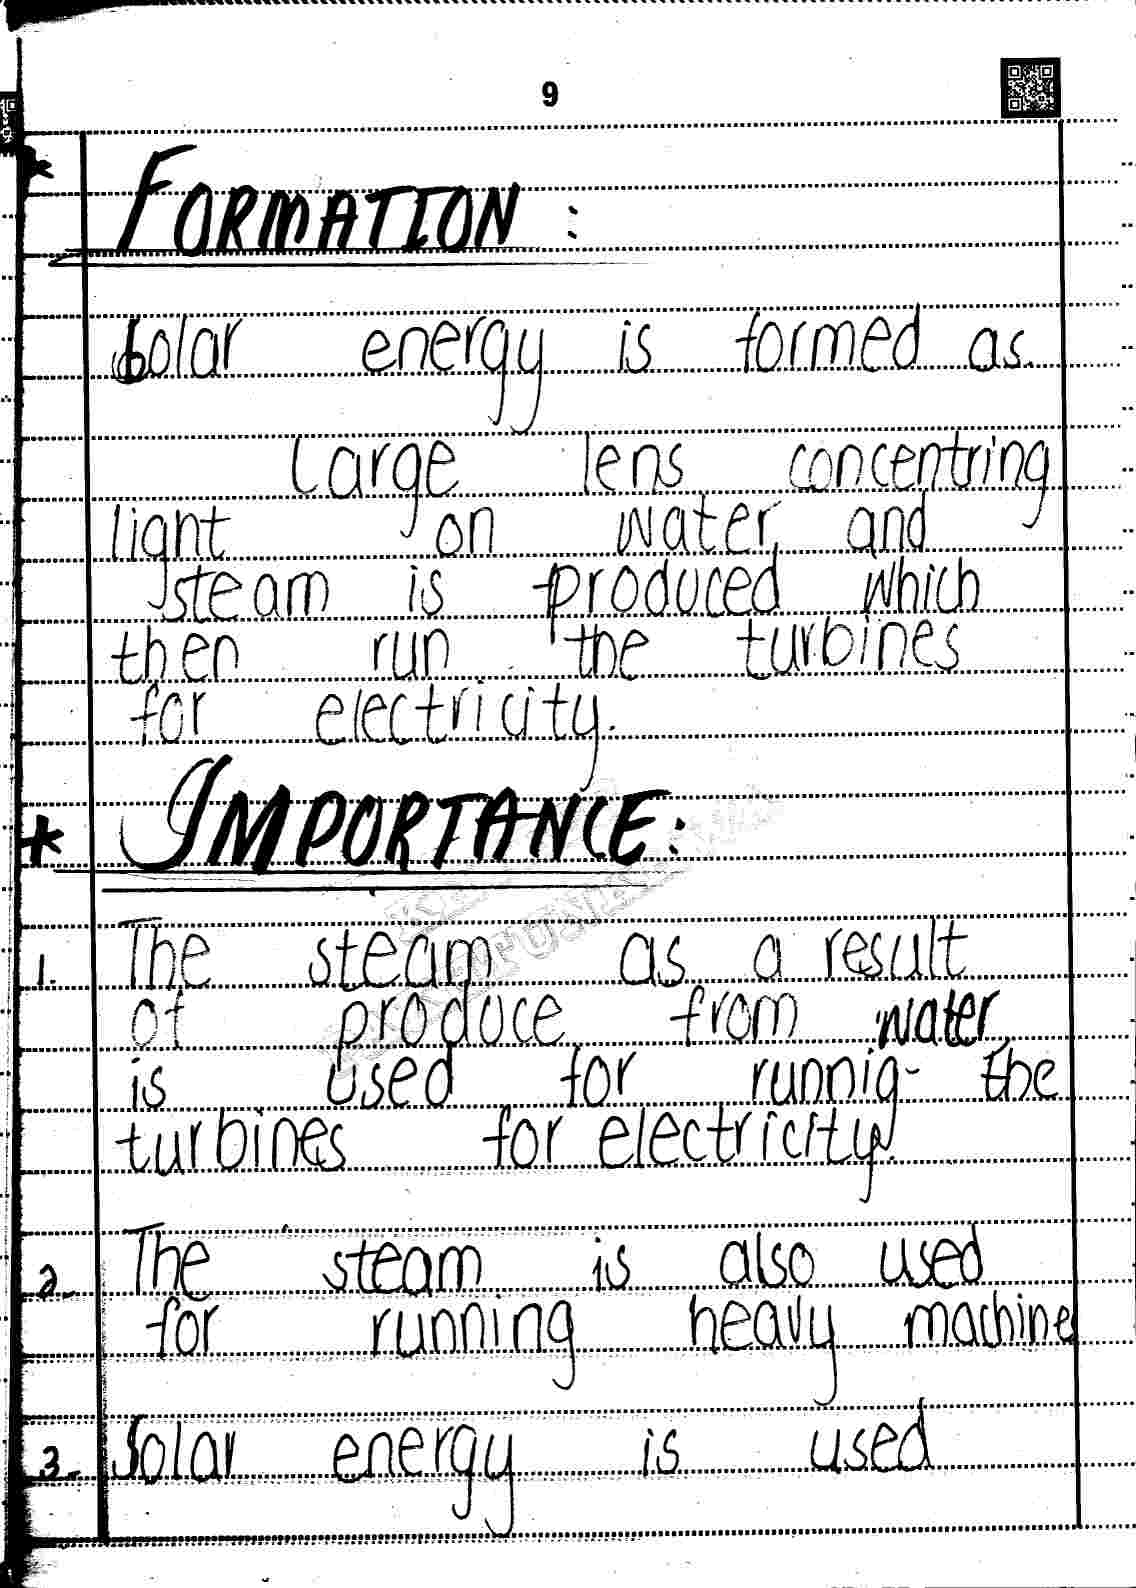 9
* FORMATION :
Solar energy is formed as.
Large lens concentring
light on water and
steam is produced which
then run the turbines
for electricity.
* IMPORTANCE :
1. The steam as a result
of produce from water
is used for runnig the
turbines for electricity.
2. The steam is also used
for running heavy machine
3. Solar energy is used